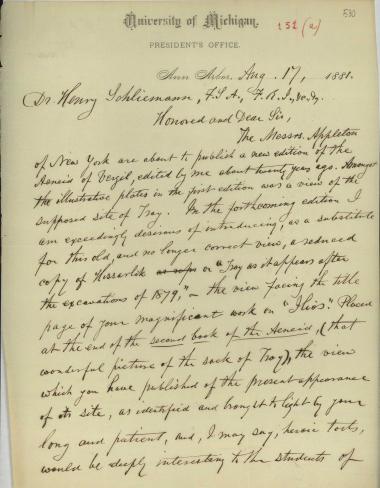 University of Michigan,
PRESIDENT'S OFFICE.
151 (a)
530
Ann Arbor, Aug. 17, 1881.
Dr. Henry Schliemann, F.S.A., F.R.I.,
Honored and Dear Sir,
The Messrs. Appleton
of New York are about to publish a new edition of the
Aeneis of Vergil, edited by me about twenty years ago. Amongst
the illustrative plates in the first edition was a view of the
supposed site of Troy. In the forthcoming edition I
am exceedingly desirous of introducing, as a substitute
for this old, and no longer correct view, a reduced
copy of Hissarlik or "Troy as it appears after
the excavations of 1879," — the view facing the title
page of your magnificent work on "Ilios." Placed
at the end of the second book of the Aeneid, (that
wonderful picture of the sack of Troy), the view
which you have published of the present appearance
of its site, as identified and brought to light by your
long and patient, and, I may say, heroic toils,
would be deeply interesting to the students of